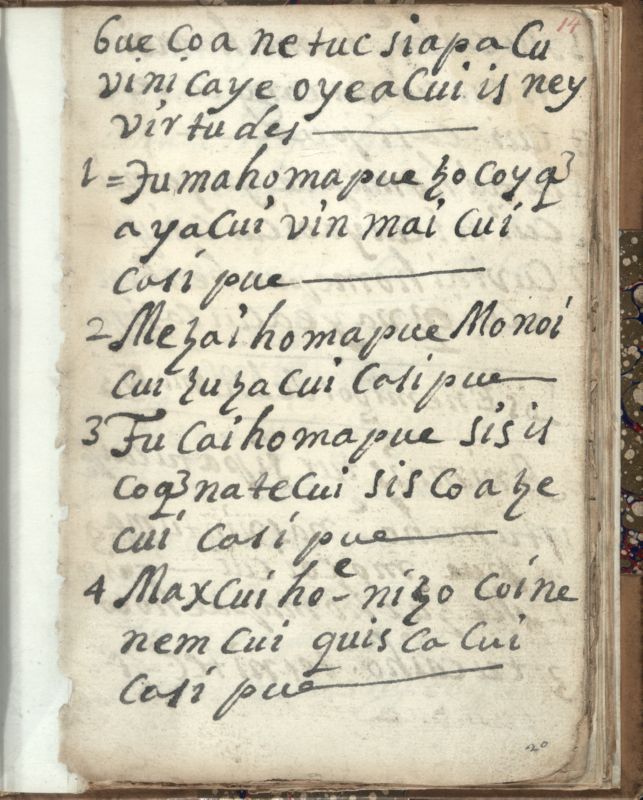 14
Gue Coa ne tuc siapa Cu
vini Caye oyea Cui is ney
virtudes
1 = Jumahomapue ho coyq3
a ya Cui vin mai Cui
Casi pue
2 Mehai homapue Monoi
Cui huha Cui Casi pue
3 Fu Cai homapue sis is
coq3 nate Cui sis Coa he
cui Casi pue
4 Max Cui hoe- niho Coine
nem Cui quis Ca Cui
Casi pue
20